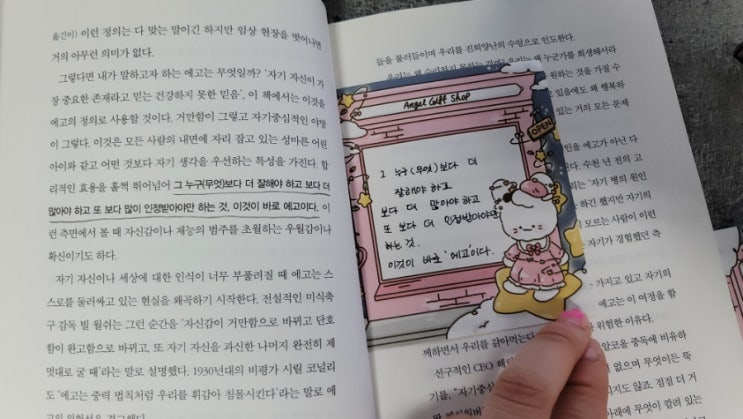 옮긴이) 이런 정의는 다 맞는 말이긴 하지만 임상 현장을 벗어나면
거의 아무런 의미가 없다.
그렇다면 내가 말하고자 하는 에고는 무엇일까? '자기 자신이 가
장 중요한 존재라고 믿는 건강하지 못한 믿음', 이 책에서는 이것을
에고의 정의로 사용할 것이다. 거만함이 그렇고 자기중심적인 야망
이 그렇다. 이것은 모든 사람의 내면에 자리 잡고 있는 성마른 어린
아이와 같고 어떤 것보다 자기 생각을 우선하는 특성을 가진다. 합
리적인 효용을 훌쩍 뛰어넘어 그 누구(무엇)보다 더 잘해야 하고 보다 더
많아야 하고 또 보다 많이 인정받아야만 하는 것, 이것이 바로 에고이다. 이
런 측면에서 볼 때 자신감이나 재능의 범주를 초월하는 우월감이나
확신이기도 하다.
자기 자신이나 세상에 대한 인식이 너무 부풀려질 때 에고는 스
스로를 둘러싸고 있는 현실을 왜곡하기 시작한다. 전설적인 미식축
구 감독 빌 월쉬는 그런 순간을 '자신감이 거만함으로 바뀌고 단호
함이 완고함으로 바뀌고, 또 자기 자신을 과신한 나머지 완전히 제
멋대로 굴 때'라는 말로 설명했다. 1930년대의 비평가 시릴 코널리
도 '에고는 중력 법칙처럼 우리를 휘감아 침몰시킨다'라는 말로 에
들을 불러들이며 우리를 진퇴양난의 수렁으로 인도한다.
Angel Gift Shop
OPEN
그 누구(무엇)보다 더
잘해야 하고
보다 더 많아야 하고
또 보다 더 인정받아야만
하는 것.
이것이 바로 '에고'이다.
누군가를 희생해서라
원하는 것을 가질 수
있음에도 왜 행복하
있는 거의 모든 문제
인을 에고가 아닌 다
다. 수천 년 전의 고
리는 '자기 병의 원인
하긴 했지만 자기의
모르는 사람이 이런
자기가 경험했던 측
가지고 있고 자기의
에고는 이 여정을 함
위험한 이유다.
께하면서 우리를 갉아먹는다
알코올 중독에 비유하
선구적인 CEO
없으며 무언이든 뚝
기를, "자기중심
지지도 않죠. 점점 더 거
아래에 무엇이 깔려 있는